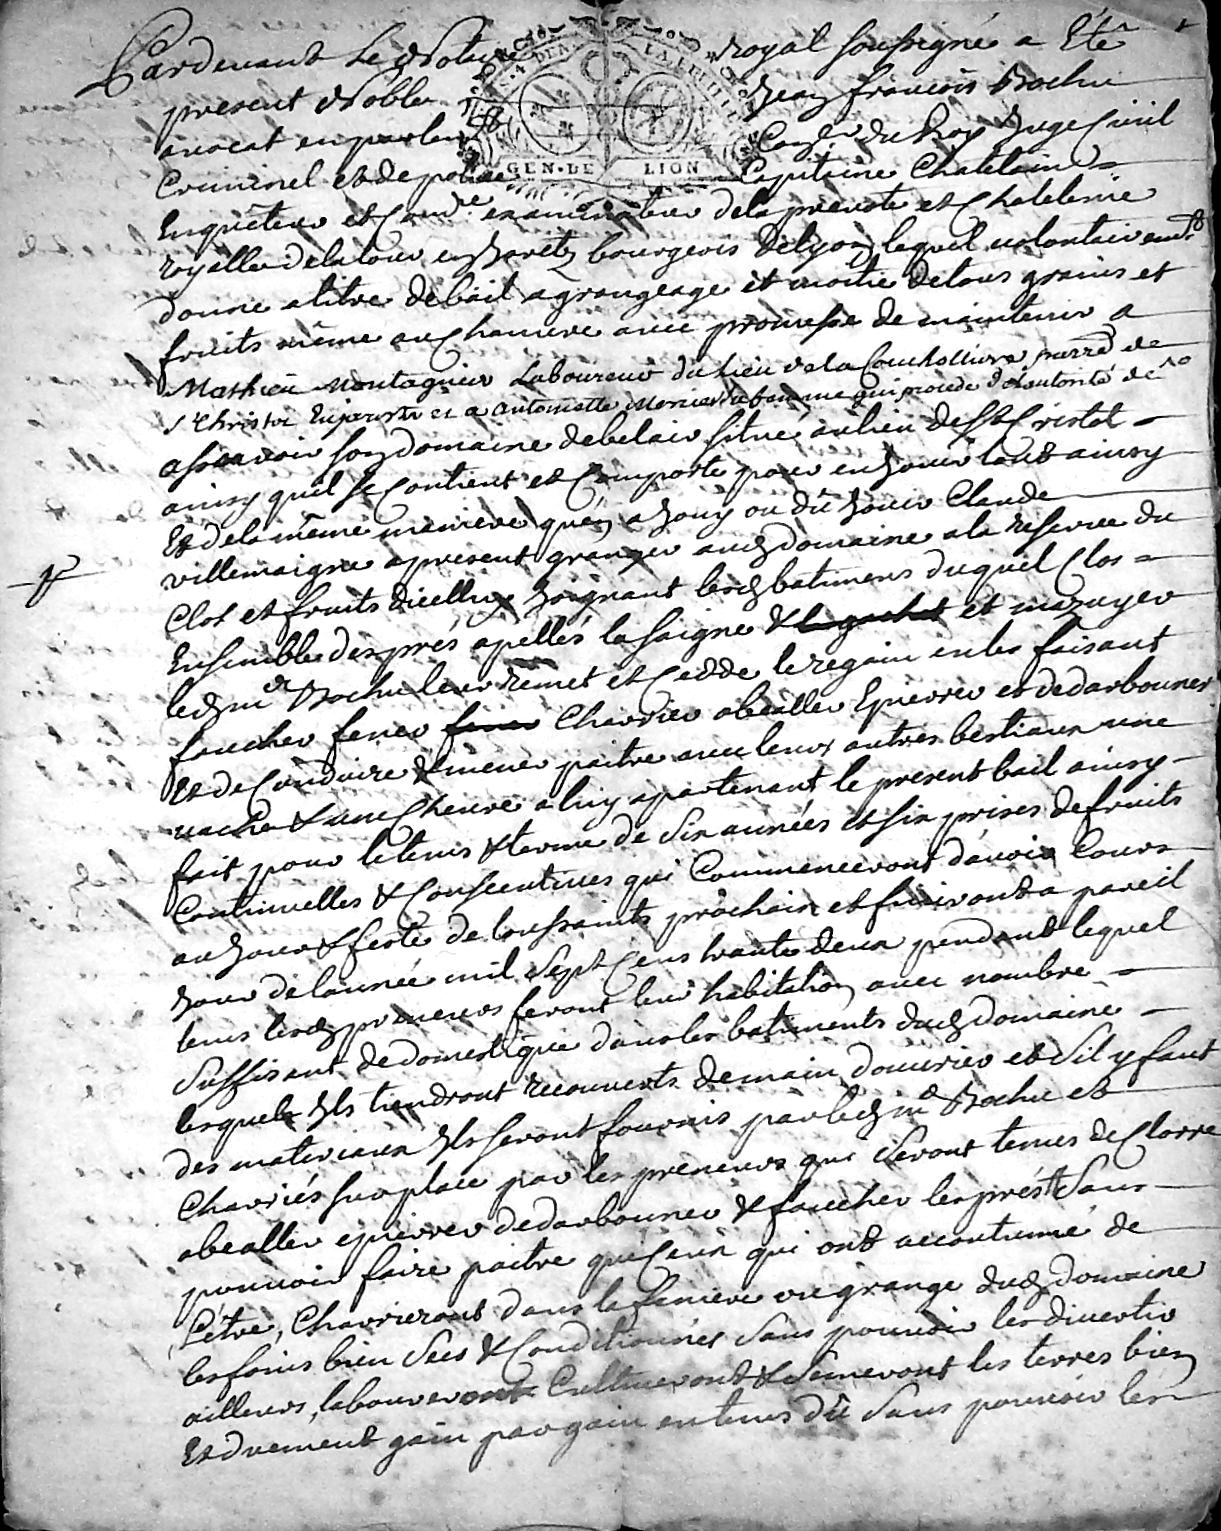 Pardevant Le Notaire royal soussigné a Eté
present Noble Jean françois Rochu
avocat en parlem Con.er du Roy Juge Civil
Criminel et de police Capitaine Chatelain
Enquêteur et Com.re examinateur dela prevoté et Chatelenie
royalle de latour en Jarets bourgeois de Lyon, lequel volontairem.t
donne a titre de bail a grangeage et moitie de tous grains et
fruits même au Chanvre avec promesse de maintenir a
Mathieu Montagnier Laboureur du Lieu de la parr.e de
S.t Christo En jarest et a Antoinette Mercier sa femme qui procede de Lautorité de
assavoir son domaine de belair situé au lieu de S.t Cristot
ainsy quil se Contient et Comporte pour en Jouir tout ainsy
Et de la même maniere quen a Jouy ou dû Jouir Claude
villemaigne apresent granger aud domaine a la reserve du
Clos et fruits dicelluy Joignant lesd batimens duquel Clos
Ensemble des prés apellés la saigne & et mazuyer
led m.r Rochu leur remet et Cedde le regain en les faisant
faucher fener fener Charrier abealler Epierrer et dedarbouner
Et de Conduire & mener paitre avec leurs autres bestiaux une
vache & une Chevre a luy apartenant le present bail ainsy
fait pour le tems & terme de Six années et six prises de fruits
Continuelles & Consecutives qui Commenceront davoir Cours
au Jour & feste de toussaints prochain et finiront a pareil
Jour de lannée mil Sept Cens trante deux pendant lequel
tems lesd preneurs feront leur habitation avec nombre
Suffisant de domestique dans les batiments dud domaine
lesquels Ils tiendront recouverts de main douvrier et Sil y faut
des materiaux Ils seront fournis par led m.r Rochu et
Charriés sur place par les preneurs qui Seront tenus de Clorre
abealler epierrer dedarbouner & faucher les prés Sans
pouvoir faire paitre que Ceux qui ont accoutumé de
Letre, Charrieront dans la feniere ou grange dud domaine
les foins bien Secs & Conditionnés Sans pouvoir les divertir
ailleurs, laboureront Cultiveront & Semeront les terres bien
Et duement gain par gain en tems dû Sans pouvoir les
GEN·DE LION